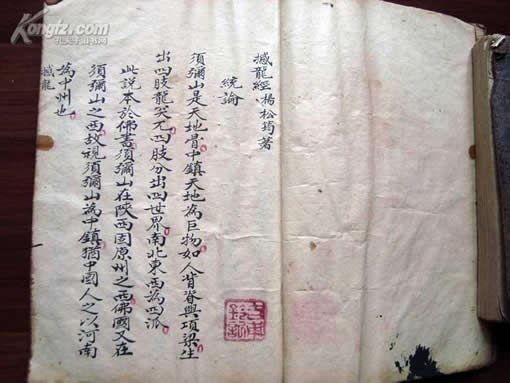 撼龍經 楊松筠著
統論
須彌山是天地骨中鎮天地為巨物如人背脊與項梁生
出四肢龍突兀四肢分出四世界南北東西為四派
此說本於佛書須彌山在陝西固原州之西佛國又在
須彌山之西故視須彌山為中鎮猶中國人之以河南
為中州也
撼龍
Kongfz.com
孔夫子旧书网